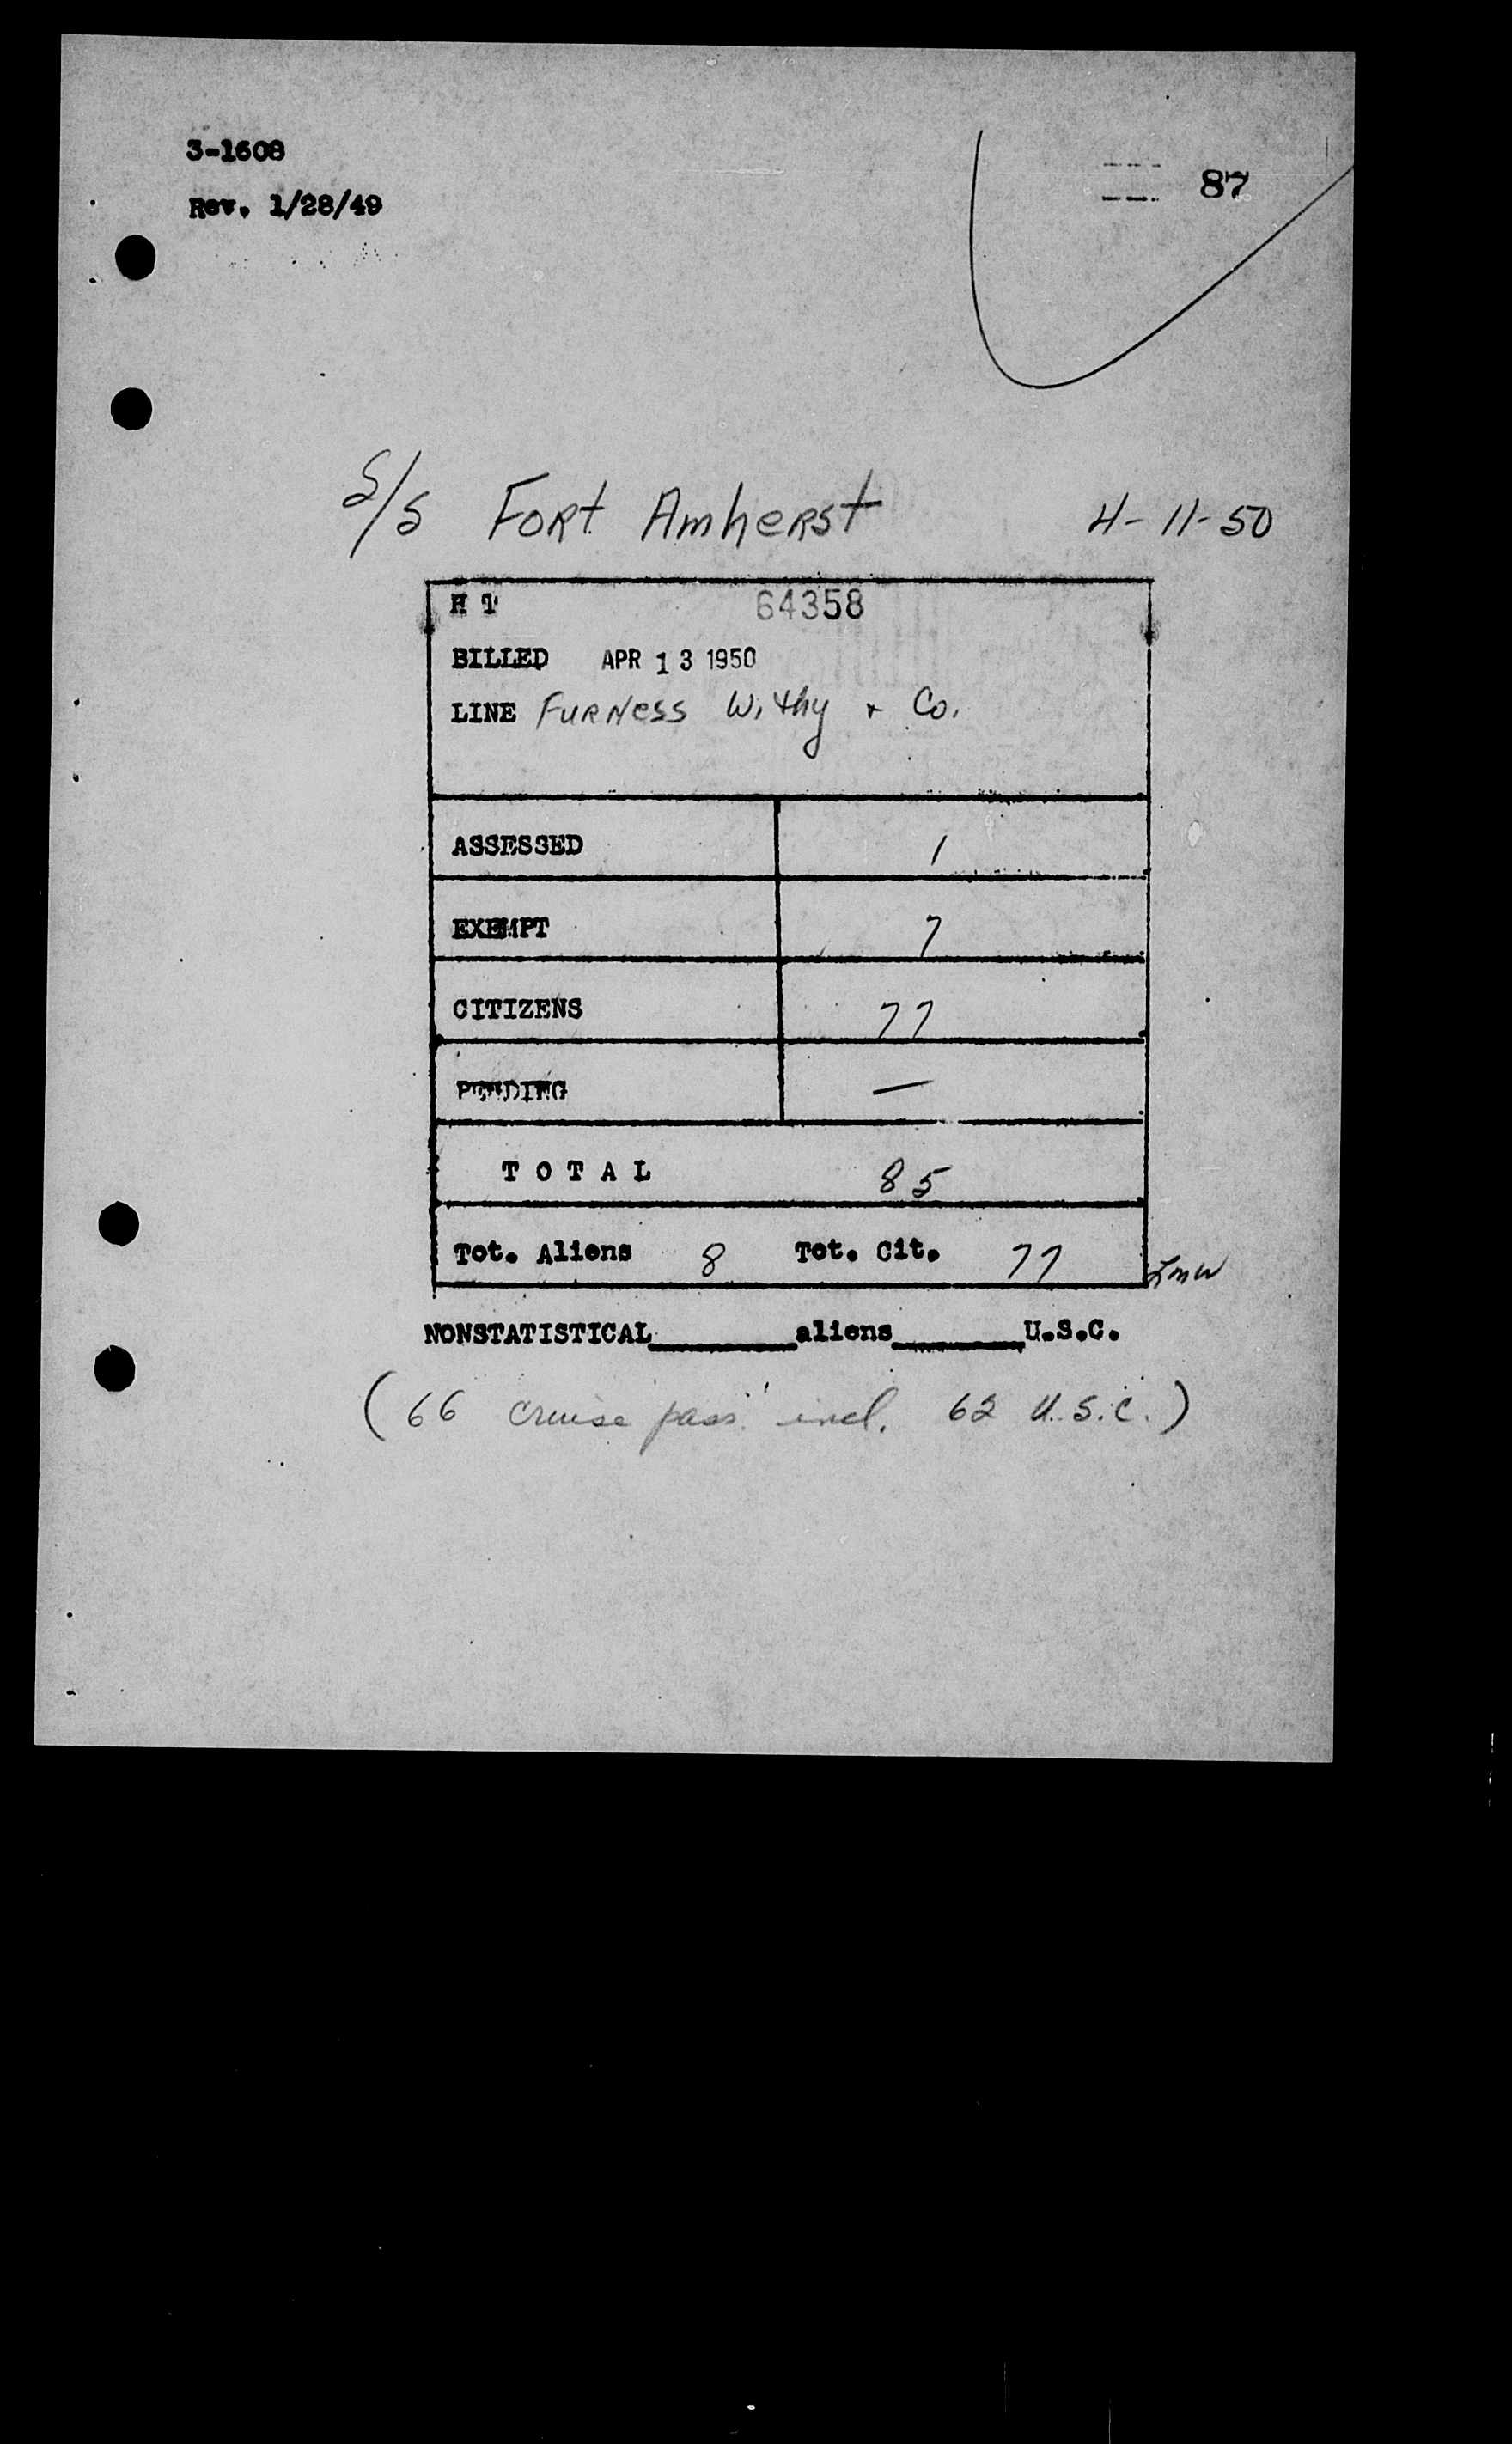 3-1608
87
Rev. 1/28/49
S/S Fort Amherst 4-11-50
H T 64358
BILLED APR 13 1950
LINE Furness Withy & Co.
ASSESSED 1
EXEMPT 7
CITIZENS 77
PENDING —
T O T A L 85
Tot. Aliens 8 Tot. Cit. 77
NONSTATISTICAL________aliens________U.S.C.
(66 cruise pass. incl. 62 U.S.C.)